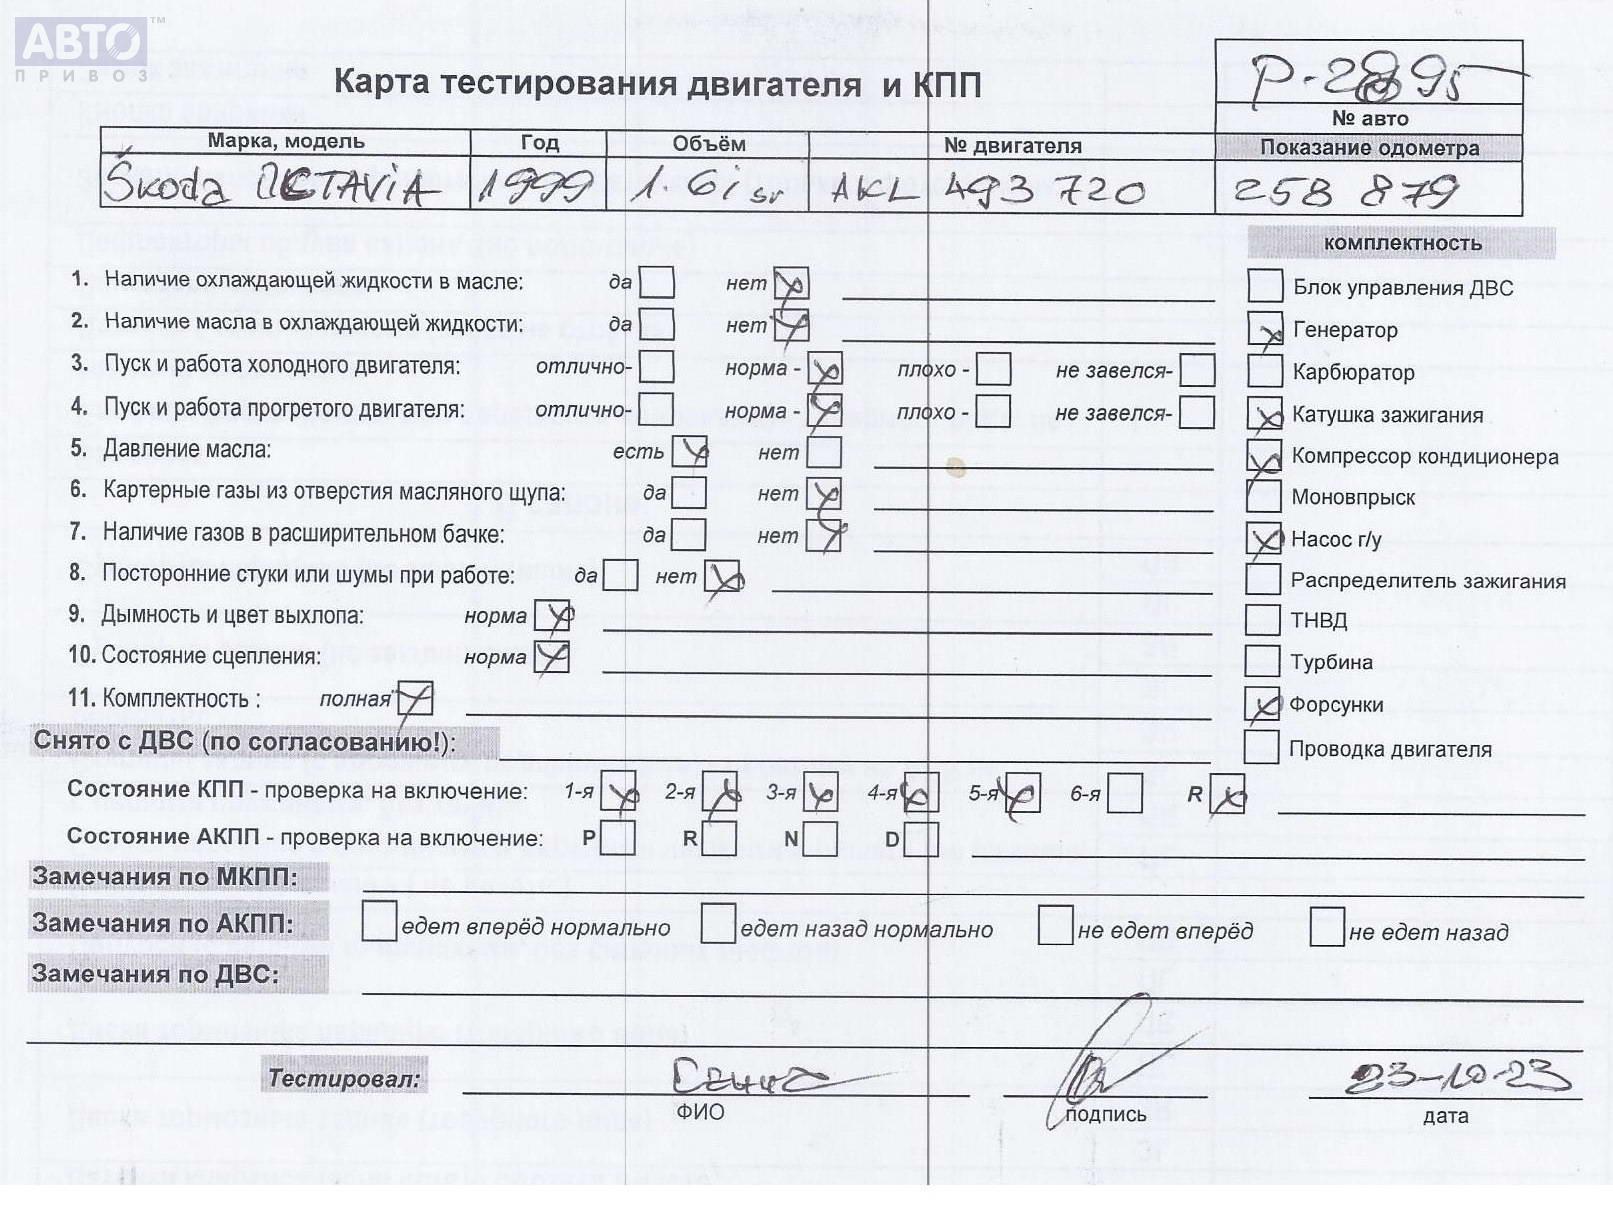 АВТО™
ПРИВОЗ
Карта тестирования двигателя и КПП
№ авто
Марка, модель Год Объём № двигателя Показание одометра
Škoda OCTAVIA 1999 1.6i sr AKL 493 720 258 879
комплектность
1. Наличие охлаждающей жидкости в масле: да нет
Блок управления ДВС
2. Наличие масла в охлаждающей жидкости: да нет
Генератор
3. Пуск и работа холодного двигателя: отлично- норма - плохо - не завелся-
Карбюратор
4. Пуск и работа прогретого двигателя: отлично- норма - плохо - не завелся-
Катушка зажигания
5. Давление масла: есть нет
Компрессор кондиционера
6. Картерные газы из отверстия масляного щупа: да нет
Моновпрыск
7. Наличие газов в расширительном бачке: да нет
Насос г/у
8. Посторонние стуки или шумы при работе: да нет
Распределитель зажигания
9. Дымность и цвет выхлопа: норма
ТНВД
10. Состояние сцепления: норма
Турбина
11. Комплектность : полная
Форсунки
Снято с ДВС (по согласованию!):
Проводка двигателя
Состояние КПП - проверка на включение: 1-я 2-я 3-я 4-я 5-я 6-я R
Состояние АКПП - проверка на включение: P R N D
Замечания по МКПП:
Замечания по АКПП: едет вперёд нормально едет назад нормально не едет вперёд не едет назад
Замечания по ДВС:
Тестировал: 23-10-23
ФИО подпись дата